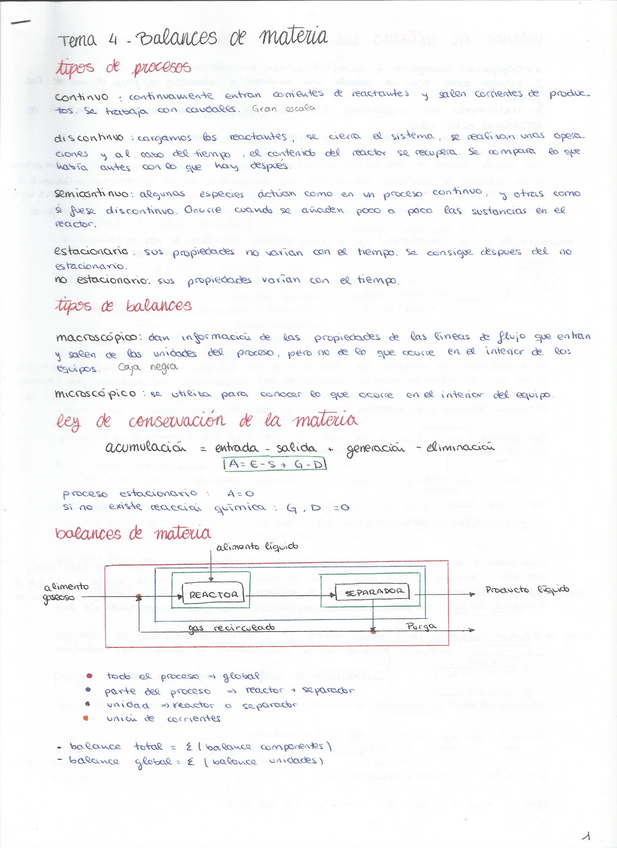 Tema 4 - Balances de materia
tipos de procesos
continuo : continuamente entran corrientes de reactantes y salen corrientes de produc-
tos. Se trabaja con caudales. Gran escala
discontinuo : cargamos los reactantes, se cierra el sistema, se realizan unas opera-
ciones y al cabo del tiempo, el contenido del reactor se recupera. Se compara lo que
había antes con lo que hay después.
semicontinuo: algunas especies actúan como en un proceso continuo, y otras como
si fuese discontinuo. Ocurre cuando se añaden poco a poco las sustancias en el
reactor.
estacionario : sus propiedades no varían con el tiempo. Se consigue después del no
estacionario.
no estacionario: sus propiedades varían con el tiempo.
tipos de balances
macroscópico: dan información de las propiedades de las líneas de flujo que entran
y salen de las unidades del proceso, pero no de lo que ocurre en el interior de los
equipos. Caja negra
microscópico : se utiliza para conocer lo que ocurre en el interior del equipo.
ley de conservación de la materia
acumulación = entrada - salida + generación - eliminación
A = E - S + G - D
proceso estacionario : A=0
si no existe reacción química : G, D =0
balances de materia
alimento líquido
alimento
gaseoso
REACTOR
SEPARADOR
Producto líquido
gas recirculado
Purga
todo el proceso → global
parte del proceso → reactor + separador
unidad → reactor o separador
unión de corrientes
- balance total = Σ (balance componentes)
- balance global = Σ (balance unidades)
1